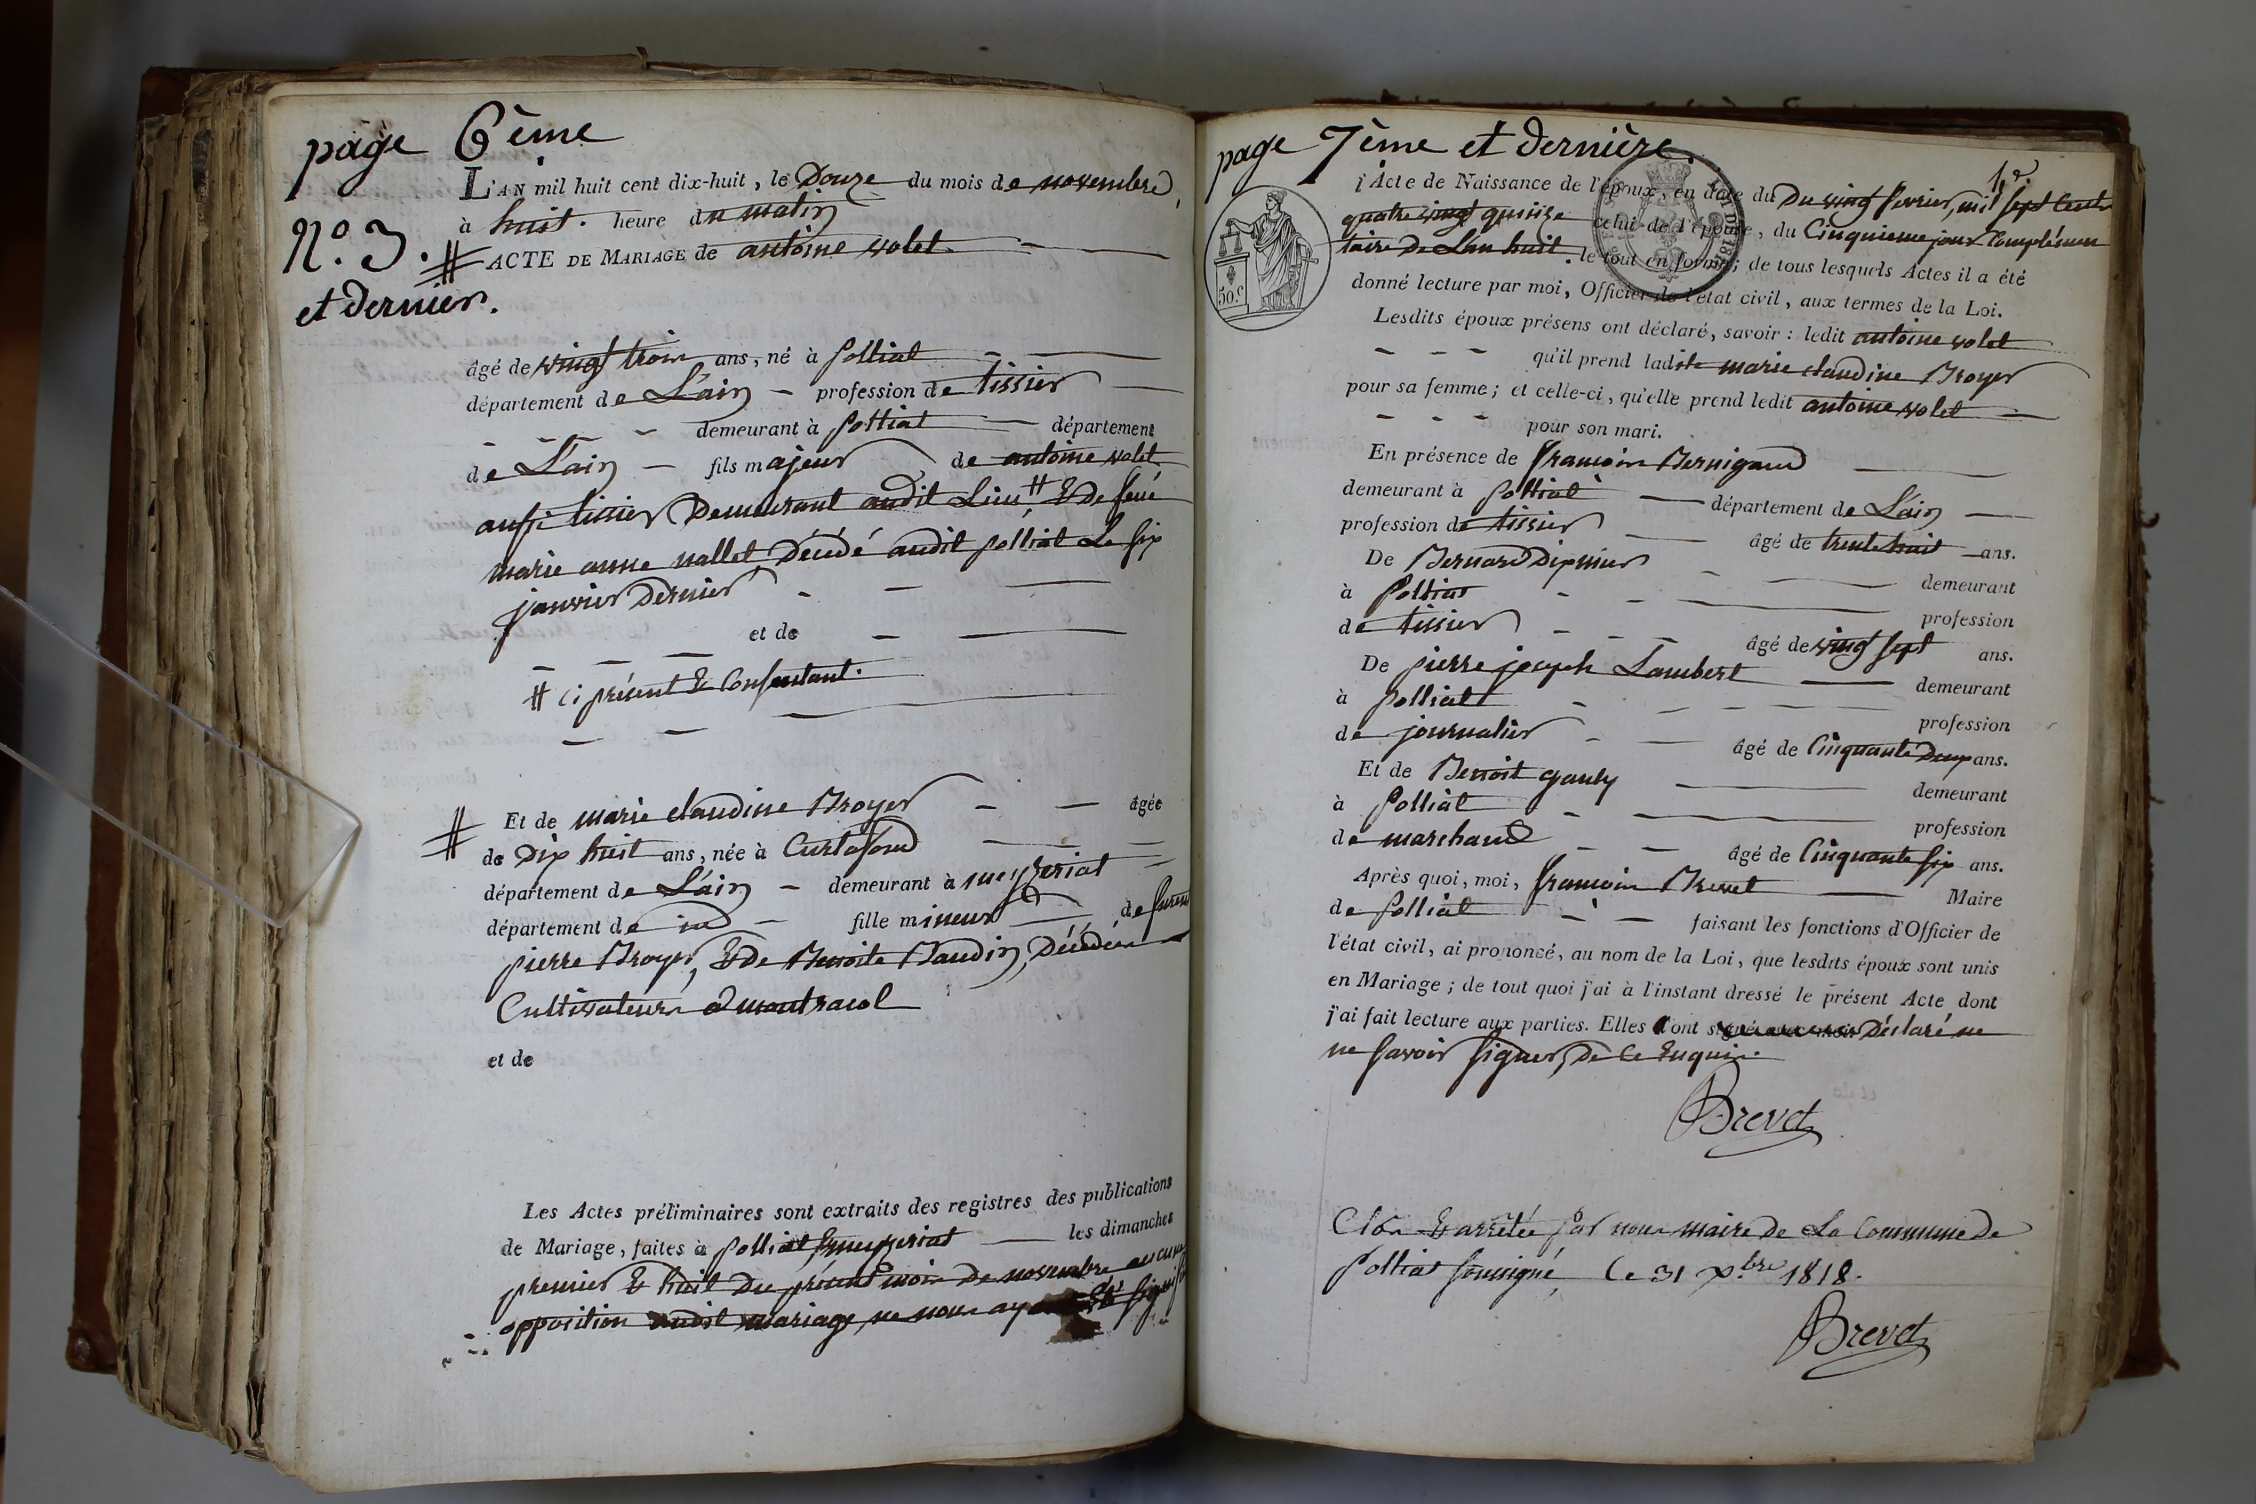 page 6ème
L'AN mil huit cent dix-huit, le Douze du mois de novembre,
à huit heure du matin
N.o 3.
ACTE DE MARIAGE de antoine volet
et dernier.
âgé de vingt trois ans, né à polliat
département de L'ain profession de tissier
demeurant à polliat département
de L'ain fils majeur de antoine volet
aussi tissier Demeurant audit Lieu # & De feue
marie anne nallet Décédé audit polliat Le six
janvier Dernier
et de
# ci présent & Consentant.
# Et de marie claudine Broyer âgée
de Dix huit ans, née à Curtafond
département de L'ain demeurant à meyzeriat
département de id fille mineur de furent
pierre Broyer, & De Benoite Baudin, Décédés
Cultivateurs à montracol
et de
Les Actes préliminaires sont extraits des registres des publications
de Mariage, faites à polliat & meyzeriat les dimanches
premier & huit Du présent mois De novembre aucune
opposition audit mariage ne nous ay été signifi
page 7ème et dernière.
1,er
50.c
; Acte de Naissance de l'époux, en date du Du vingt fevrier, mil sept Cents
quatre vingt quinze celui de l'épouse, du Cinquieme jour Complémen
taire De L'an huit. le tout en forme; de tous lesquels Actes il a été
donné lecture par moi, Officier de l'état civil, aux termes de la Loi.
Lesdits époux présens ont déclaré, savoir : ledit antoine volet
qu'il prend ladite marie claudine Broyer
pour sa femme; et celle-ci, qu'elle prend ledit antoine volet
pour son mari.
En présence de françois Bernigaud
demeurant à polliat département de L'ain
profession de tissier âgé de trente huit ans.
De Bernard Dipnier demeurant
à polliat profession
de tissier âgé de vingt sept ans.
De pierre joseph Lambert demeurant
à polliat profession
de journalier âgé de Cinquante Deux ans.
Et de Benoit gauly demeurant
à polliat profession
de marchand âgé de Cinquante six ans.
Après quoi, moi, françois Brevet Maire
de polliat faisant les fonctions d'Officier de
l'état civil, ai prononcé, au nom de la Loi, que lesdits époux sont unis
en Mariage; de tout quoi j'ai à l'instant dressé le présent Acte dont
j'ai fait lecture aux parties. Elles ont Déclaré ne
ne savoir signer, De Ce Enquis.
Brevet
Clos & arrêtée par nous maire de La Commune De
polliat soussigné, Ce 31 xbre 1818.
Brevet